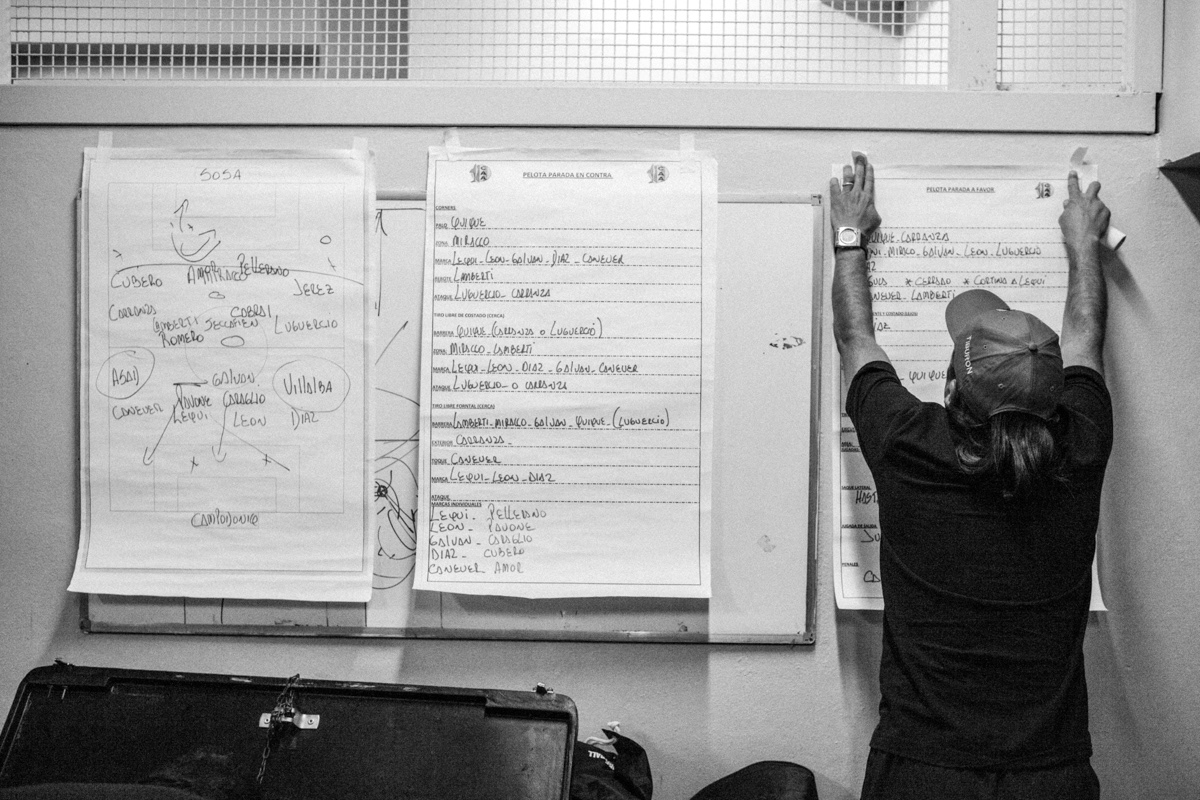 SOSA
CUBERO AMOR PELLERANO JEREZ
CARRANZA CABRAL
LAMBERTI LUGUERCIO
ROMERO
ASAD GALVAN VILLALBA
CANEVER PAVONE CARAGLIO
LEQUI LEON DIAZ
CAMPODONICO
PELOTA PARADA EN CONTRA
CORNERS
PALO QUIQUE
ZONA MIRACCO
MARCA LEQUI - LEON - GALVAN - DIAZ - CANEVER
REBOTE LAMBERTI
ATAQUE LUGUERCIO - CARRANZA
TIRO LIBRE DE COSTADO (CERCA)
BARRERA QUIQUE (CARRANZA O LUGUERCIO)
ZONA MIRACCO - LAMBERTI
MARCA LEQUI - LEON - DIAZ - GALVAN - CANEVER
ATAQUE LUGUERCIO - O CARRANZA
TIRO LIBRE FORNTAL (CERCA)
BARRERA LAMBERTI - MIRACCO - GALVAN - QUIQUE - (LUGUERCIO)
EXTERIOR CARRANZA -
TOQUE CANEVER
MARCA LEQUI - LEON - DIAZ
ATAQUE
MARCAS INDIVIDUALES
LEQUI - PELLERANO
LEON - PAVONE
GALVAN - CARAGLIO
DIAZ - CUBERO
CANEVER AMOR
PELOTA PARADA A FAVOR
QUIQUE - CARRANZA
MIRACO - GALVAN - LEON - LUGUERCIO
* CERRADO * CORTINA A LEQUI
CANEVER - LAMBERTI
QUIQUE
TIBURON